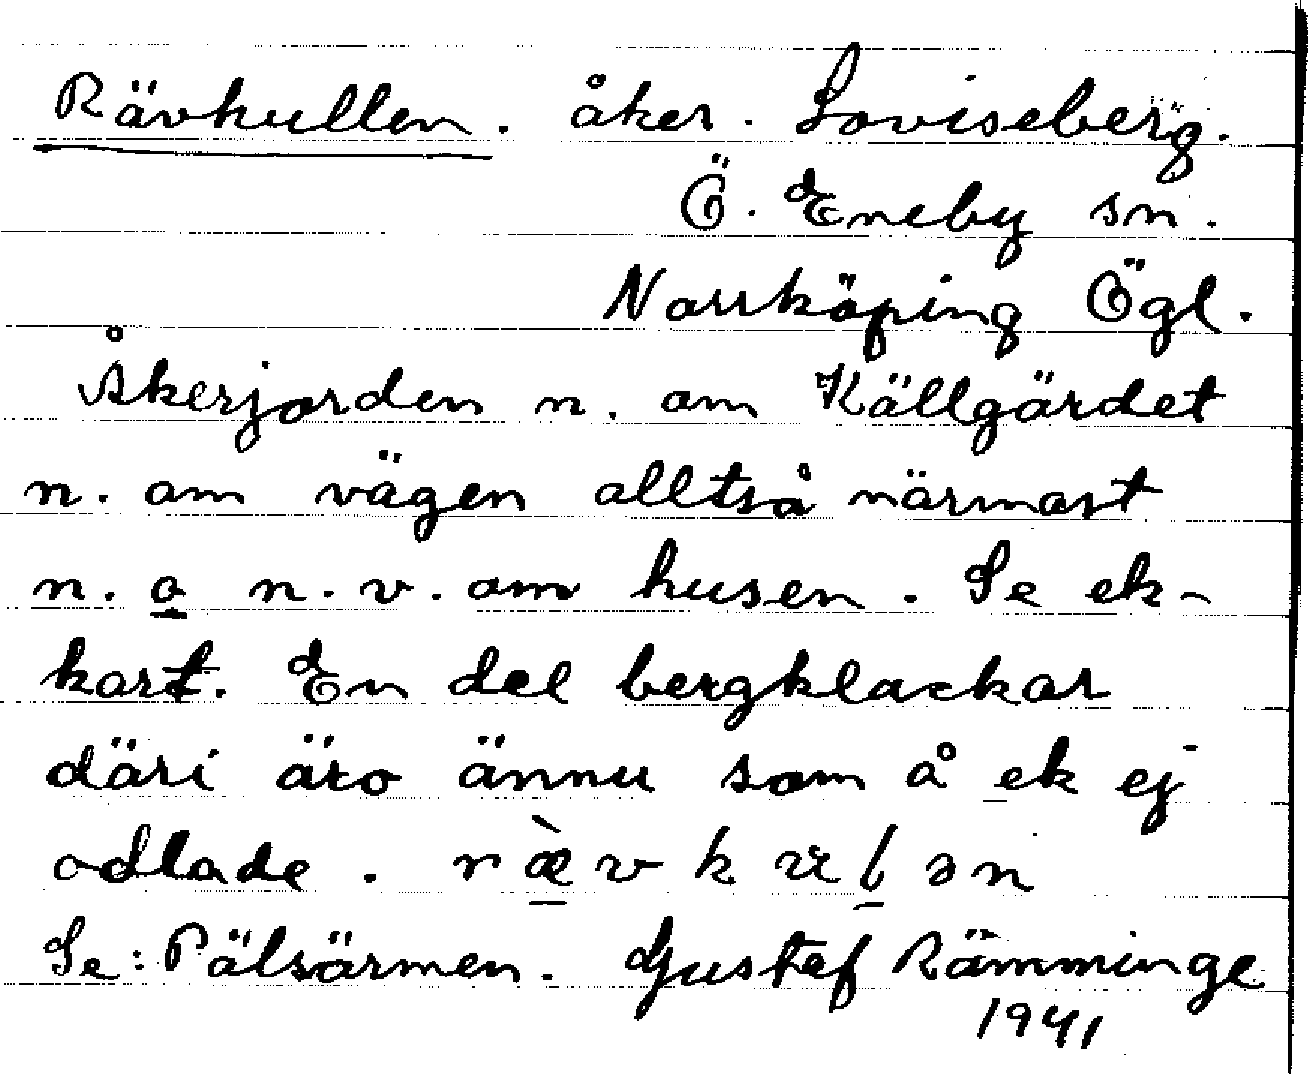 Rävkullen. åker. Loviseberg.
Ö. Eneby sn.
Norrköping Ögl.
Åkerjorden n. om Källgärdet
n. om vägen alltså närmast
n. o n.v. om husen. Se ek-
kart. En del bergklackar
däri äro ännu som å ek ej
odlade.
Se: Pälsärmen. Gustaf Rämminge
1941